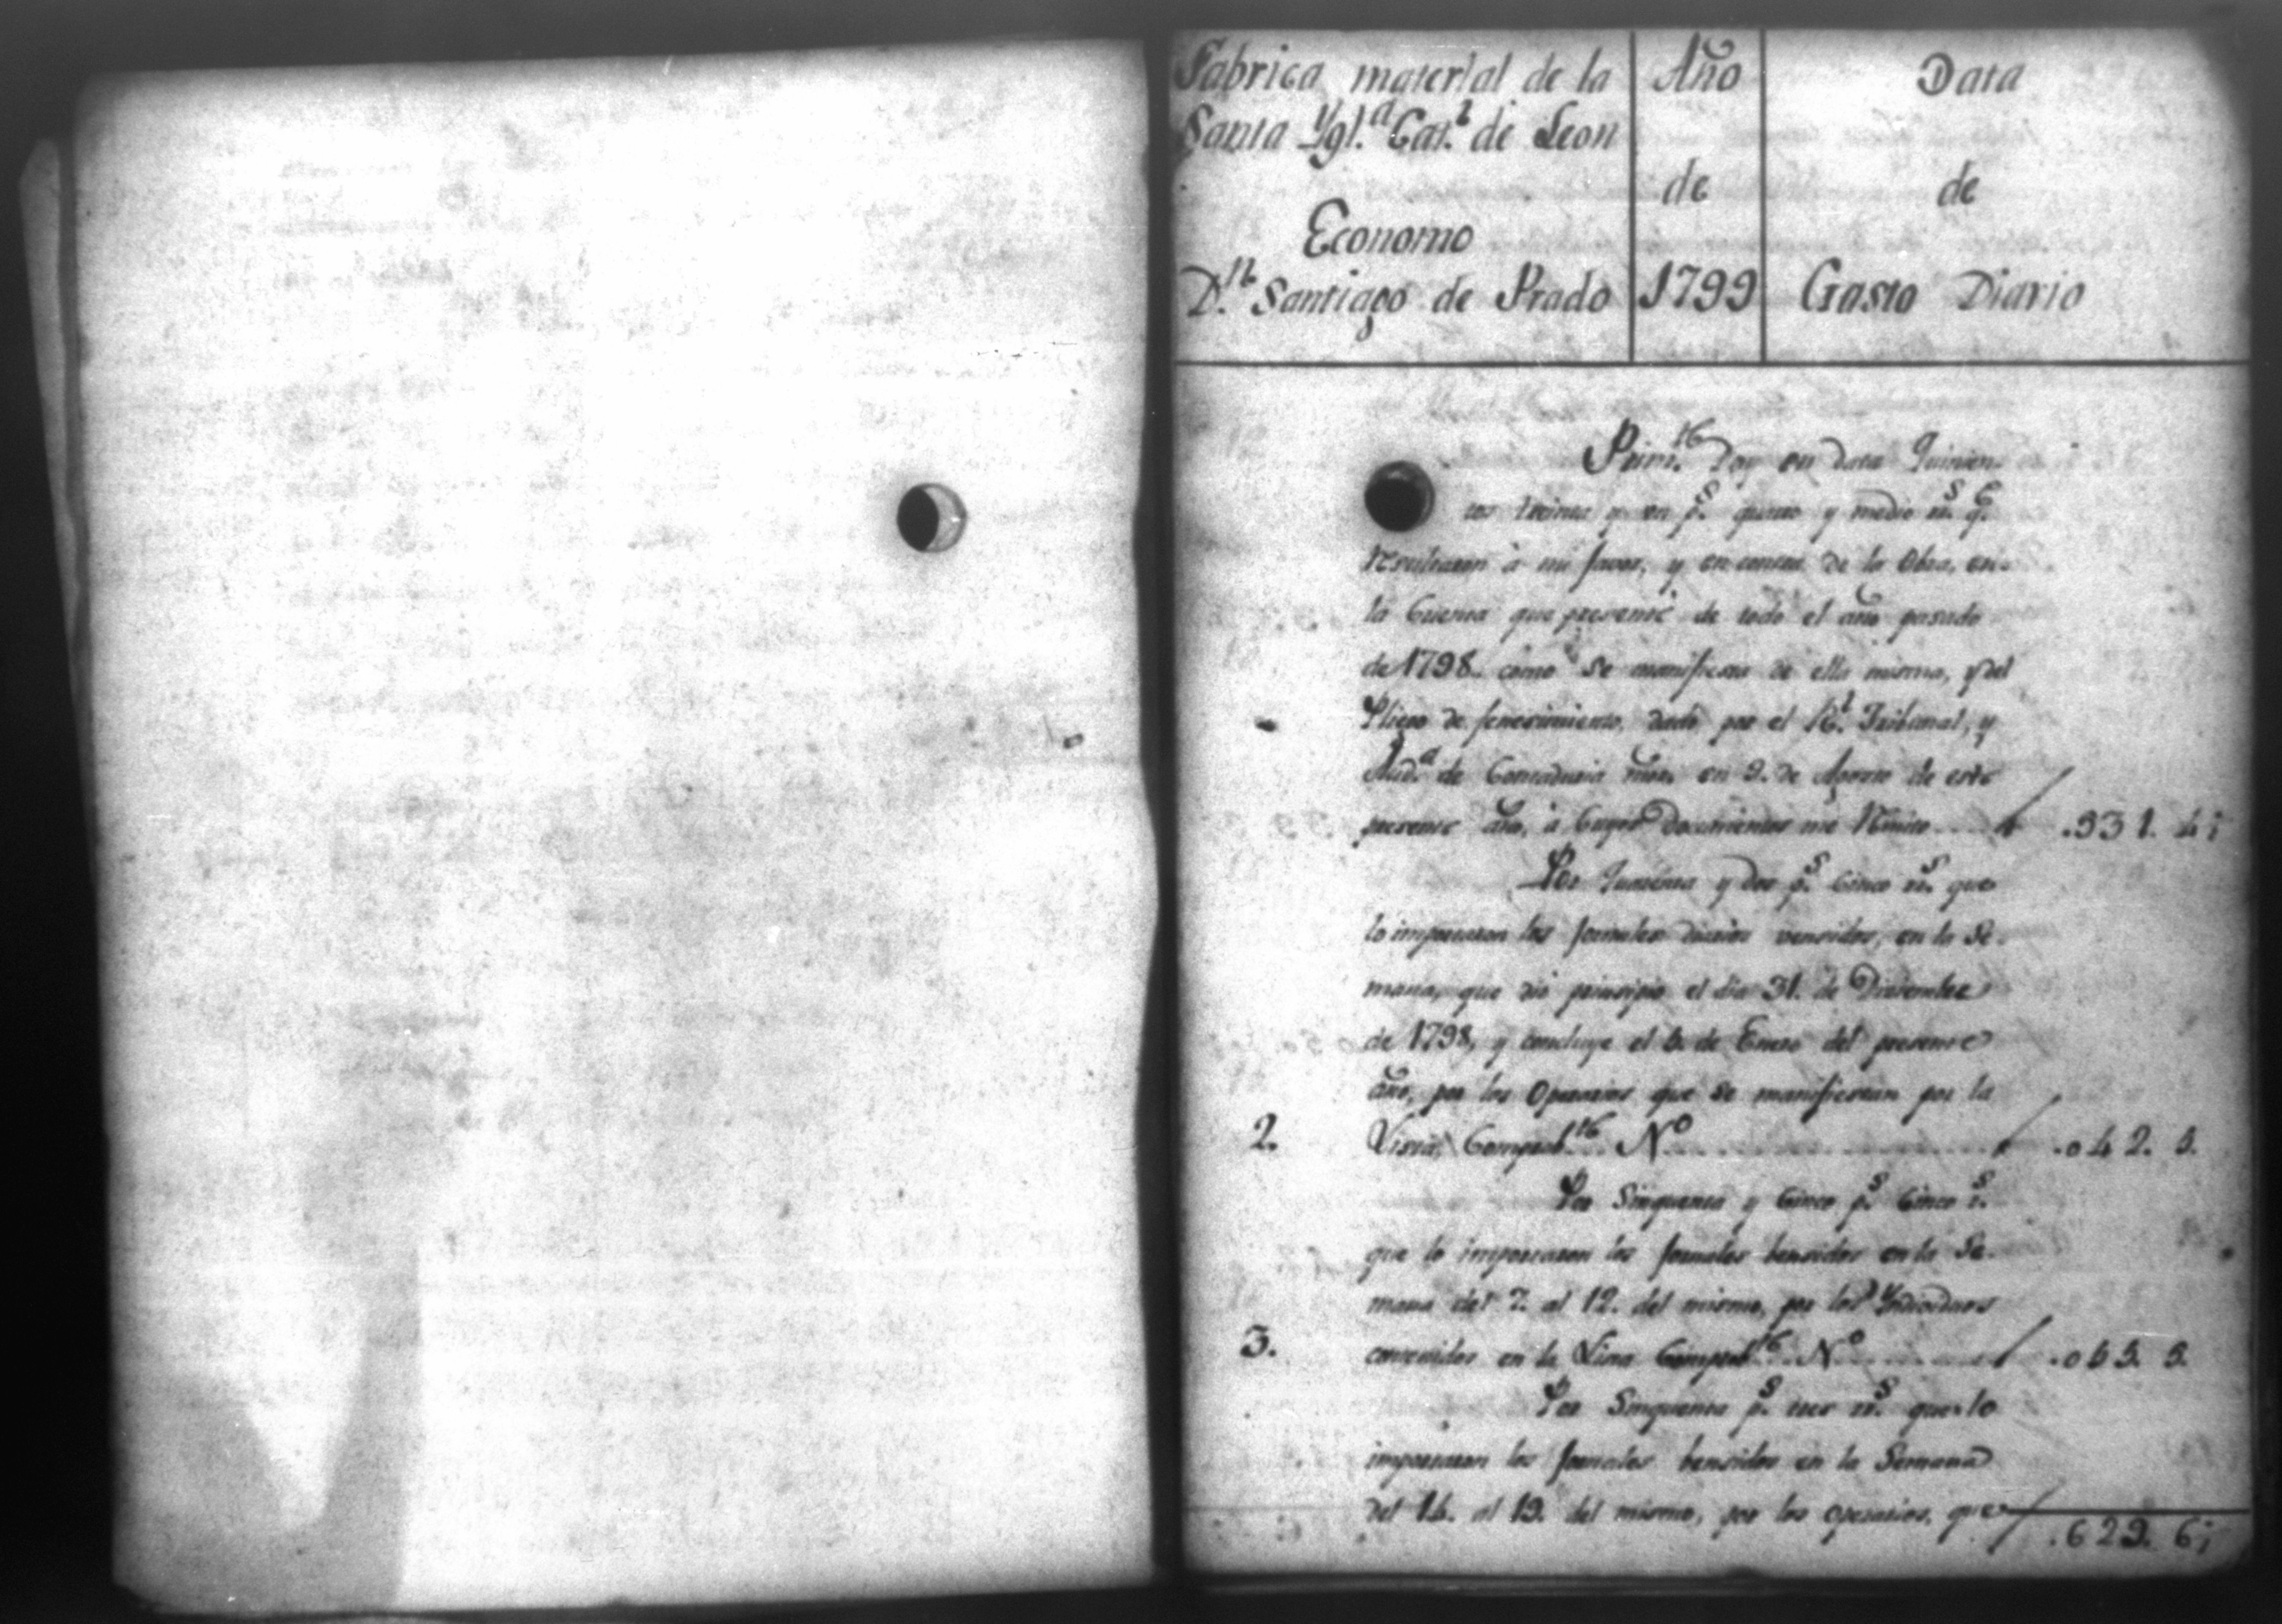 Fabrica material de la
Santa Ygl.ª Cat.l de Leon
Economo
D.n Santiago de Prado
Año
de
1799
Data
de
Gasto Diario
Prim.te Doy en data Quinien-
tos treinta y un p.s quatro y medio rr.s q.e
Resultaron à mi favor, y en contra de la Obra, en
la Cuenta que presenté de todo el año pasado
de 1798. como se manifiesta de ella misma, y del
Pliego de fenecimiento, dado por el R.l Tribunal, y
Aud.ª de Contaduria mãr. en 9. de Agosto de este
presente año, à Cuyos Documentos me Rmito .531. 4½
Por Quarenta y dos p.s Cinco rr.s que
lo importaron los Jornales diarios vensidos, en la Se-
mana, que dió principio el dia 31. de Diciembre
de 1798, y concluye el 5. de Enero del presente
año, por los Operarios que se manifiestan por la
2. Lista, Comprob.te N.o .042. 5.
Por Sinquenta y Cinco p.s Cinco r.s
que lo importaron los Jornales bensidos en la Se-
mana del 7. al 12. del mismo, por los Yndividuos
3. contenidos en la Lista Comprob.te N.o .055. 5.
Por Sinquenta p.s tres rr.s que lo
importaron los Jornales bensidos en la Semana
del 14. al 19. del mismo, por los operarios, que
.629. 6½